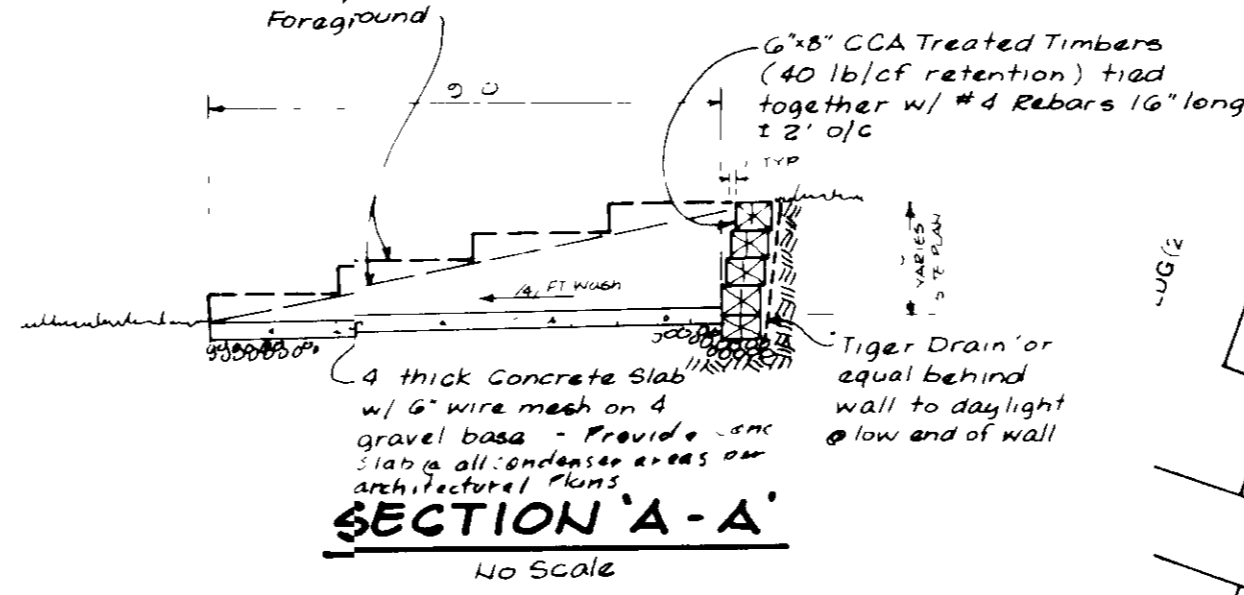 Foreground
9 0
6"x8" CCA Treated Timbers
(40 lb/cf retention) tied
together w/ #4 Rebars 16" long
± 2' o/c
TYP
VARIES
PLAN
FT Wash
4 thick Concrete Slab
w/ 6" wire mesh on 4
gravel base - Provide
Slab @ all condenser areas
architectural Plans
Tiger Drain or
equal behind
wall to daylight
@ low end of wall
SECTION 'A-A'
No Scale